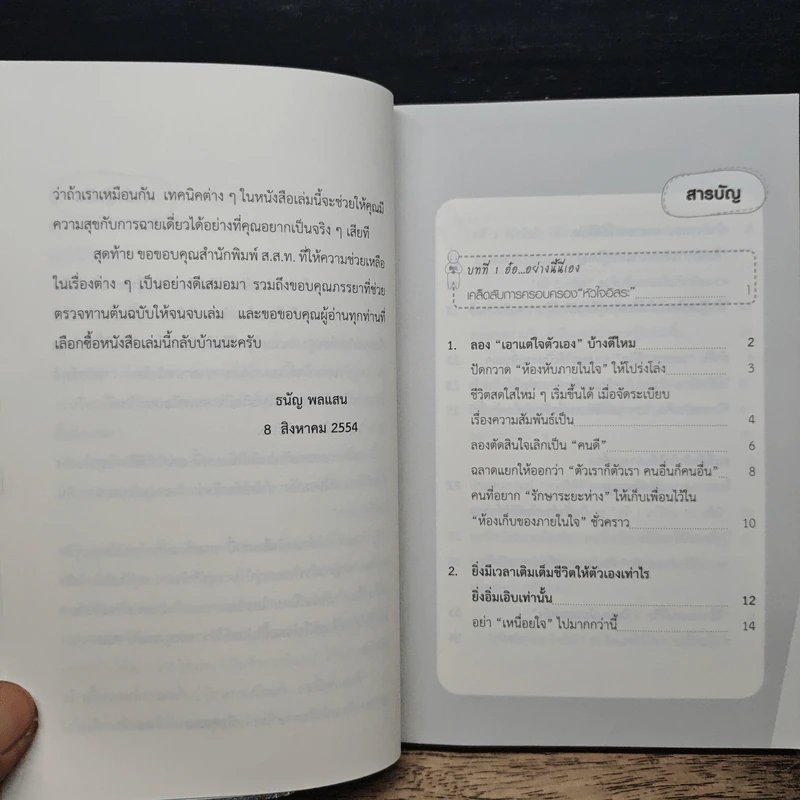 ว่าถ้าเราเหมือนกัน เทคนิคต่าง ๆ ในหนังสือเล่มนี้จะช่วยให้คุณมี
ความสุขกับการฉายเดี่ยวได้อย่างที่คุณอยากเป็นจริง ๆ เสียที
สุดท้าย ขอขอบคุณสำนักพิมพ์ ส.ส.ท. ที่ให้ความช่วยเหลือ
ในเรื่องต่าง ๆ เป็นอย่างดีเสมอมา รวมถึงขอบคุณภรรยาที่ช่วย
ตรวจทานต้นฉบับให้จนจบเล่ม และขอขอบคุณผู้อ่านทุกท่านที่
เลือกซื้อหนังสือเล่มนี้กลับบ้านนะครับ
ธนัญ พลแสน
8 สิงหาคม 2554
สารบัญ
บทที่ 1 อ๋อ...อย่างนี้นี่เอง
เคล็ดลับการครอบครอง "หัวใจอิสระ" 1
1. ลอง "เอาแต่ใจตัวเอง" บ้างดีไหม 2
ปัดกวาด "ห้องหับภายในใจ" ให้โปร่งโล่ง 3
ชีวิตสดใสใหม่ ๆ เริ่มขึ้นได้ เมื่อจัดระเบียบ
เรื่องความสัมพันธ์เป็น 4
ลองตัดสินใจเลิกเป็น "คนดี" 6
ฉลาดแยกให้ออกว่า "ตัวเราก็ตัวเรา คนอื่นก็คนอื่น" 8
คนที่อยาก "รักษาระยะห่าง" ให้เก็บเพื่อนไว้ใน
"ห้องเก็บของภายในใจ" ชั่วคราว 10
2. ยิ่งมีเวลาเติมเต็มชีวิตให้ตัวเองเท่าไร
ยิ่งอิ่มเอิบเท่านั้น 12
อย่า "เหนื่อยใจ" ไปมากกว่านี้ 14